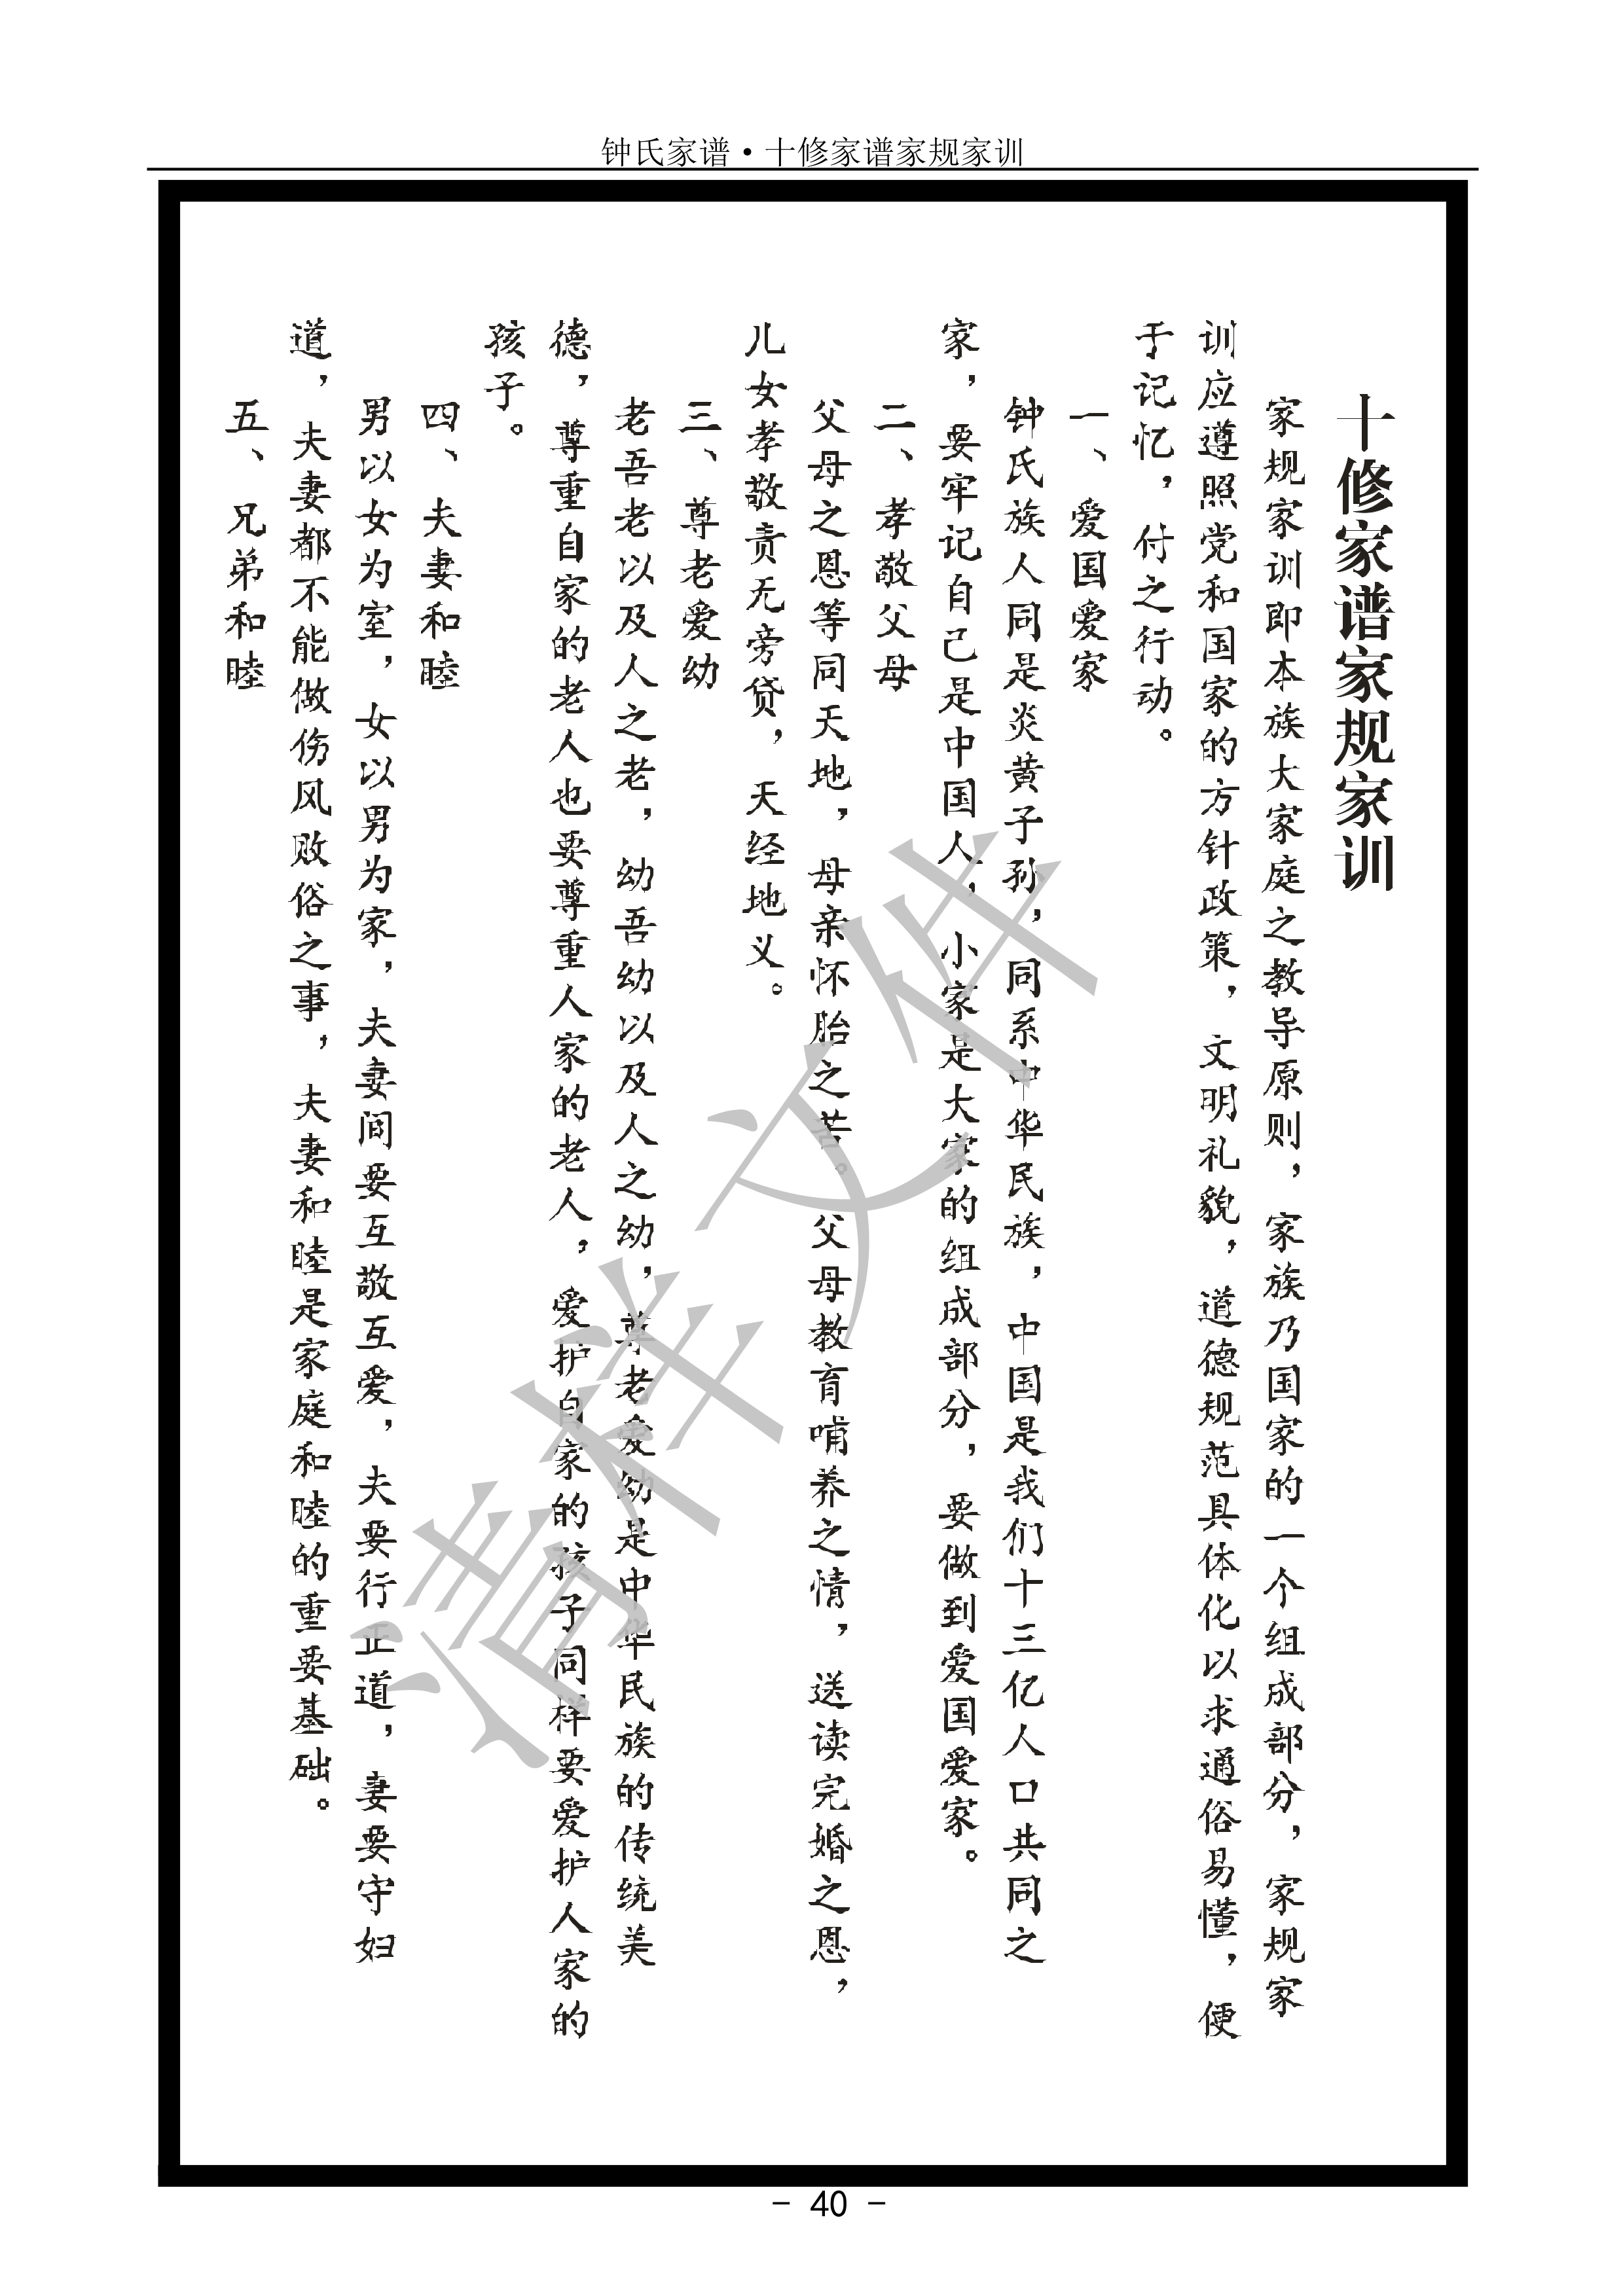 钟氏家谱·十修家谱家规家训
十修家谱家规家训
家规家训即本族大家庭之教导原则，家族乃国家的一个组成部分，家规家
训应遵照党和国家的方针政策，文明礼貌，道德规范具体化以求通俗易懂，便
于记忆，付之行动。
一、爱国爱家
钟氏族人同是炎黄子孙，同系中华民族，中国是我们十三亿人口共同之
家，要牢记自己是中国人，小家是大家的组成部分，要做到爱国爱家。
二、孝敬父母
父母之恩等同天地，母亲怀胎之苦。父母教育哺养之情，送读完婚之恩，
儿女孝敬责无旁贷，天经地义。
三、尊老爱幼
老吾老以及人之老，幼吾幼以及人之幼，尊老爱幼是中华民族的传统美
德，尊重自家的老人也要尊重人家的老人，爱护自家的孩子同样要爱护人家的
孩子。
四、夫妻和睦
男以女为室，女以男为家，夫妻间要互敬互爱，夫要行正道，妻要守妇
道，夫妻都不能做伤风败俗之事，夫妻和睦是家庭和睦的重要基础。
五、兄弟和睦
清样文件
- 40 -